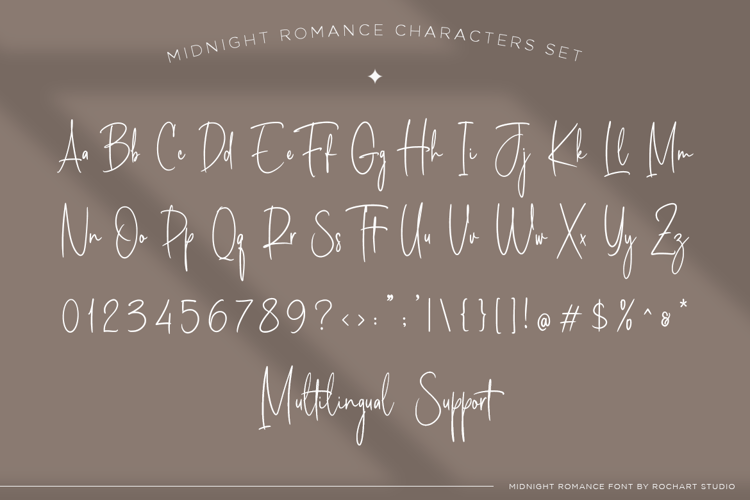 MIDNIGHT ROMANCE CHARACTERS SET
Aa Bb Cc Dd Ee Ff Gg Hh Ii Jj Kk Ll Mm
Nn Oo Pp Qq Rr Ss Tt Uu Vv Ww Xx Yy Zz
0123456789?<>:";'|\{}[]!@#$%^&*
Multilingual Support
MIDNIGHT ROMANCE FONT BY ROCHART STUDIO